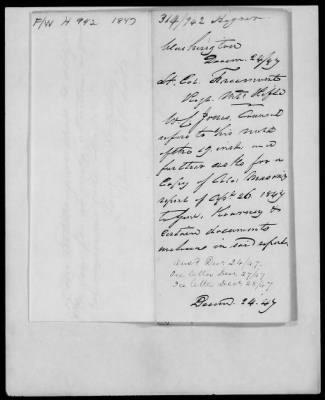 F/W H 942 1847
314/942
Washington
Decem. 24/47
Lt. Col. Freemont
Regt. Mtd Rifles
W C Jones, Counsel
refers to his note
of the 19 inst. and
further asks for a
Copy of Col. Mason's
report of 26. 1847
to Gen. Kearney &
certain documents
in said report.
Ans'd Dec. 24/47.
See letter Dec. 27/47
See letter Dec. 28/47
Decem. 24. 47